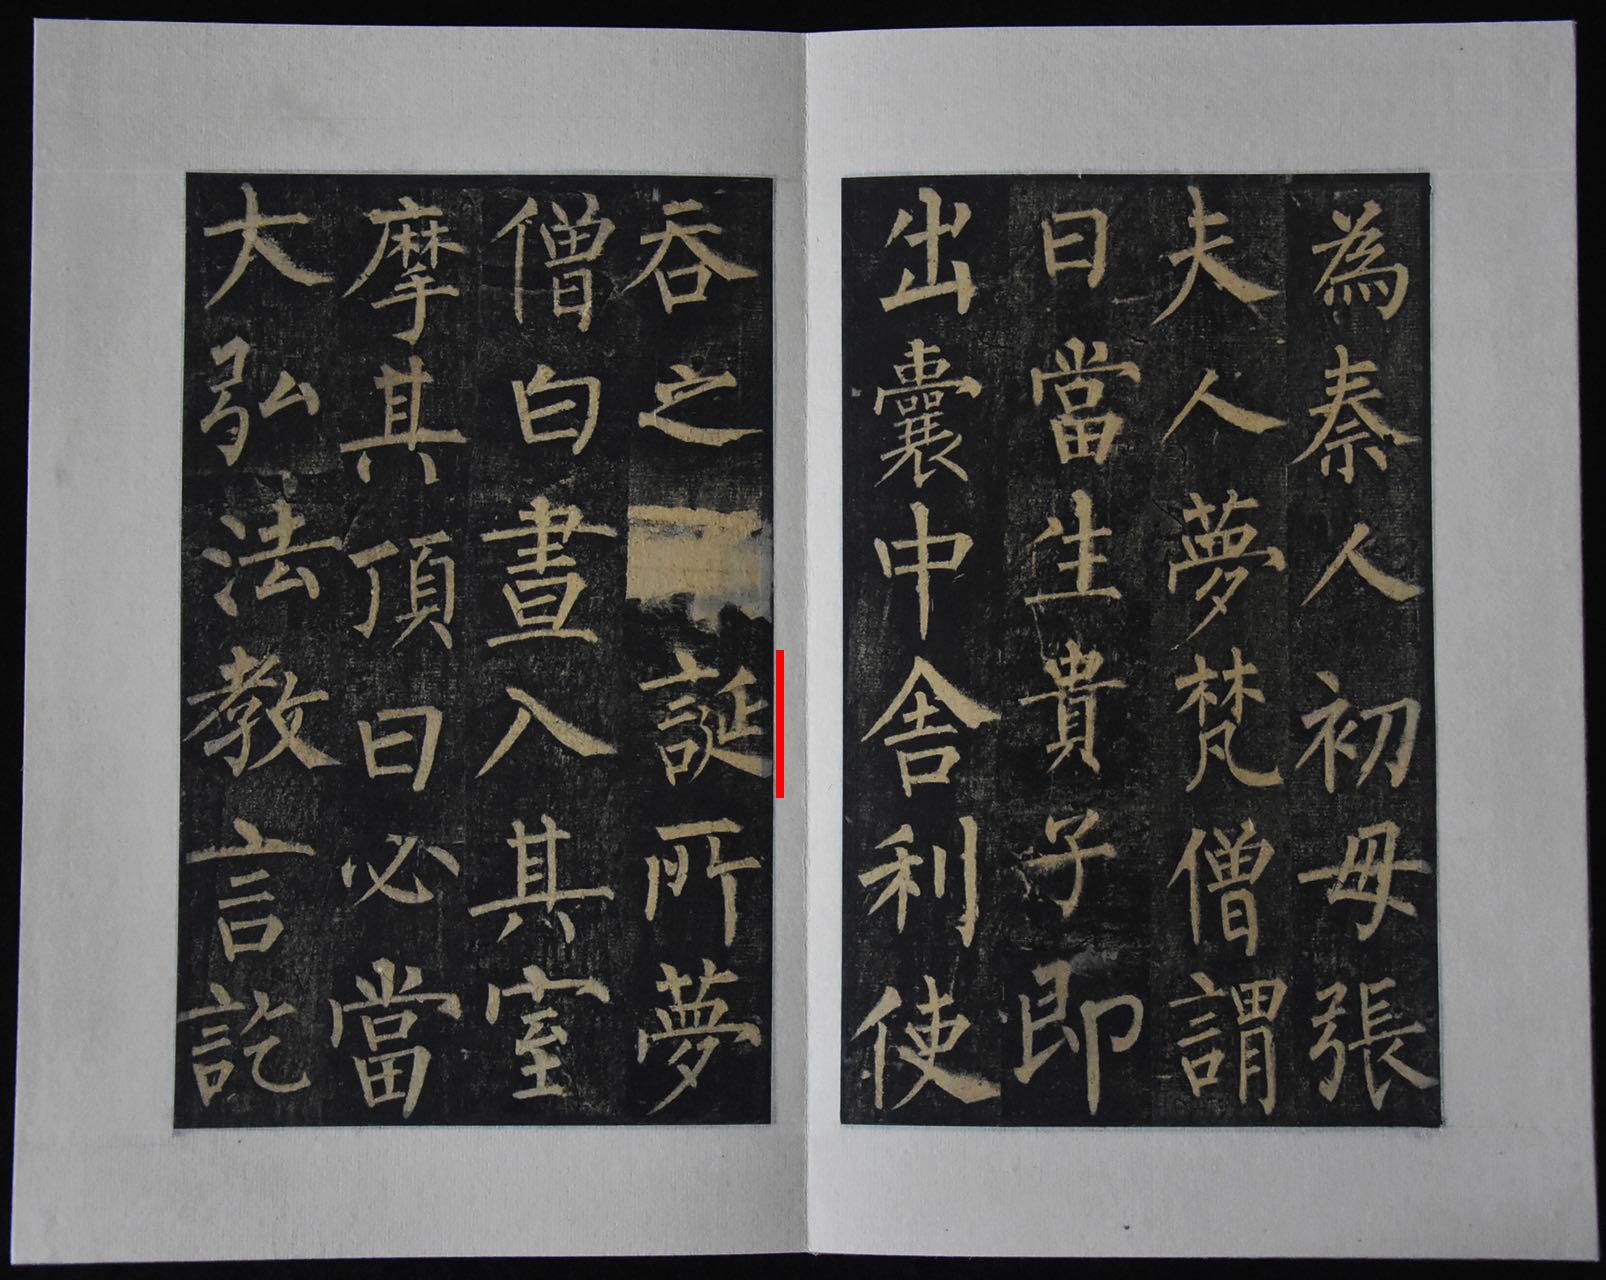 為秦人初母張
夫人夢梵僧謂
曰當生貴子即
出囊中舍利使
吞之誕所夢
僧白晝入其室
摩其頂曰必當
大弘法教言訖